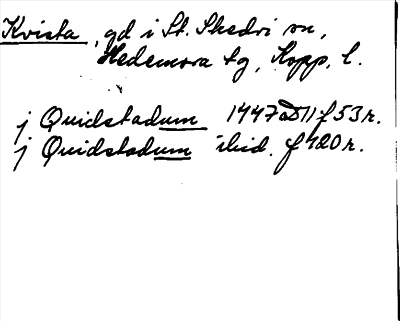 Kvista, gd i St. Skedvi sn,
Hedemora tg, Kopp. l.
j Quidstadum 1447 D11 f 53 r.
j Quidstadum ibid. f 120 r.